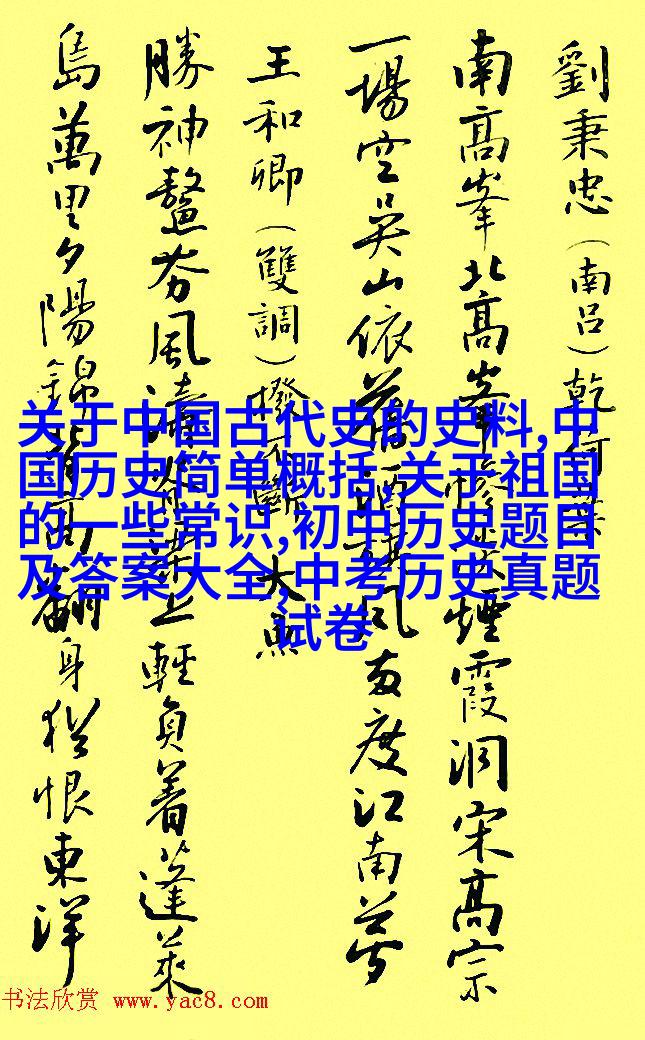 劉秉忠（南呂）乾荷葉
南高峯北高峯慘淡煙霞洞宋高宗
一場空吳山依舊酒旗風兩度江南夢
王和卿（雙調）撥不斷 大魚
勝神鼇夯風濤脊梁上輕負着蓬萊
島萬里夕陽錦背高翻身猶恨東洋
关于中国古代史的史料,中
国历史简单概括,关于祖国
的一些常识,初中历史题目
及答案大全,中考历史真题
试卷
书法欣赏 www.yac8.com